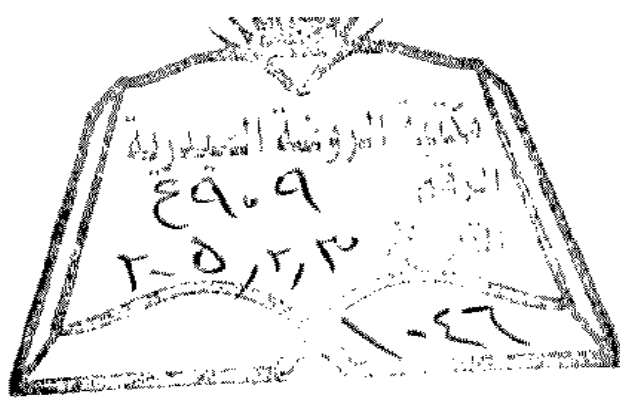 مكتبة الروضة الحيدرية
الرقم ٤٩٠٩
٢-٥,٢,٣
١٠٤٦